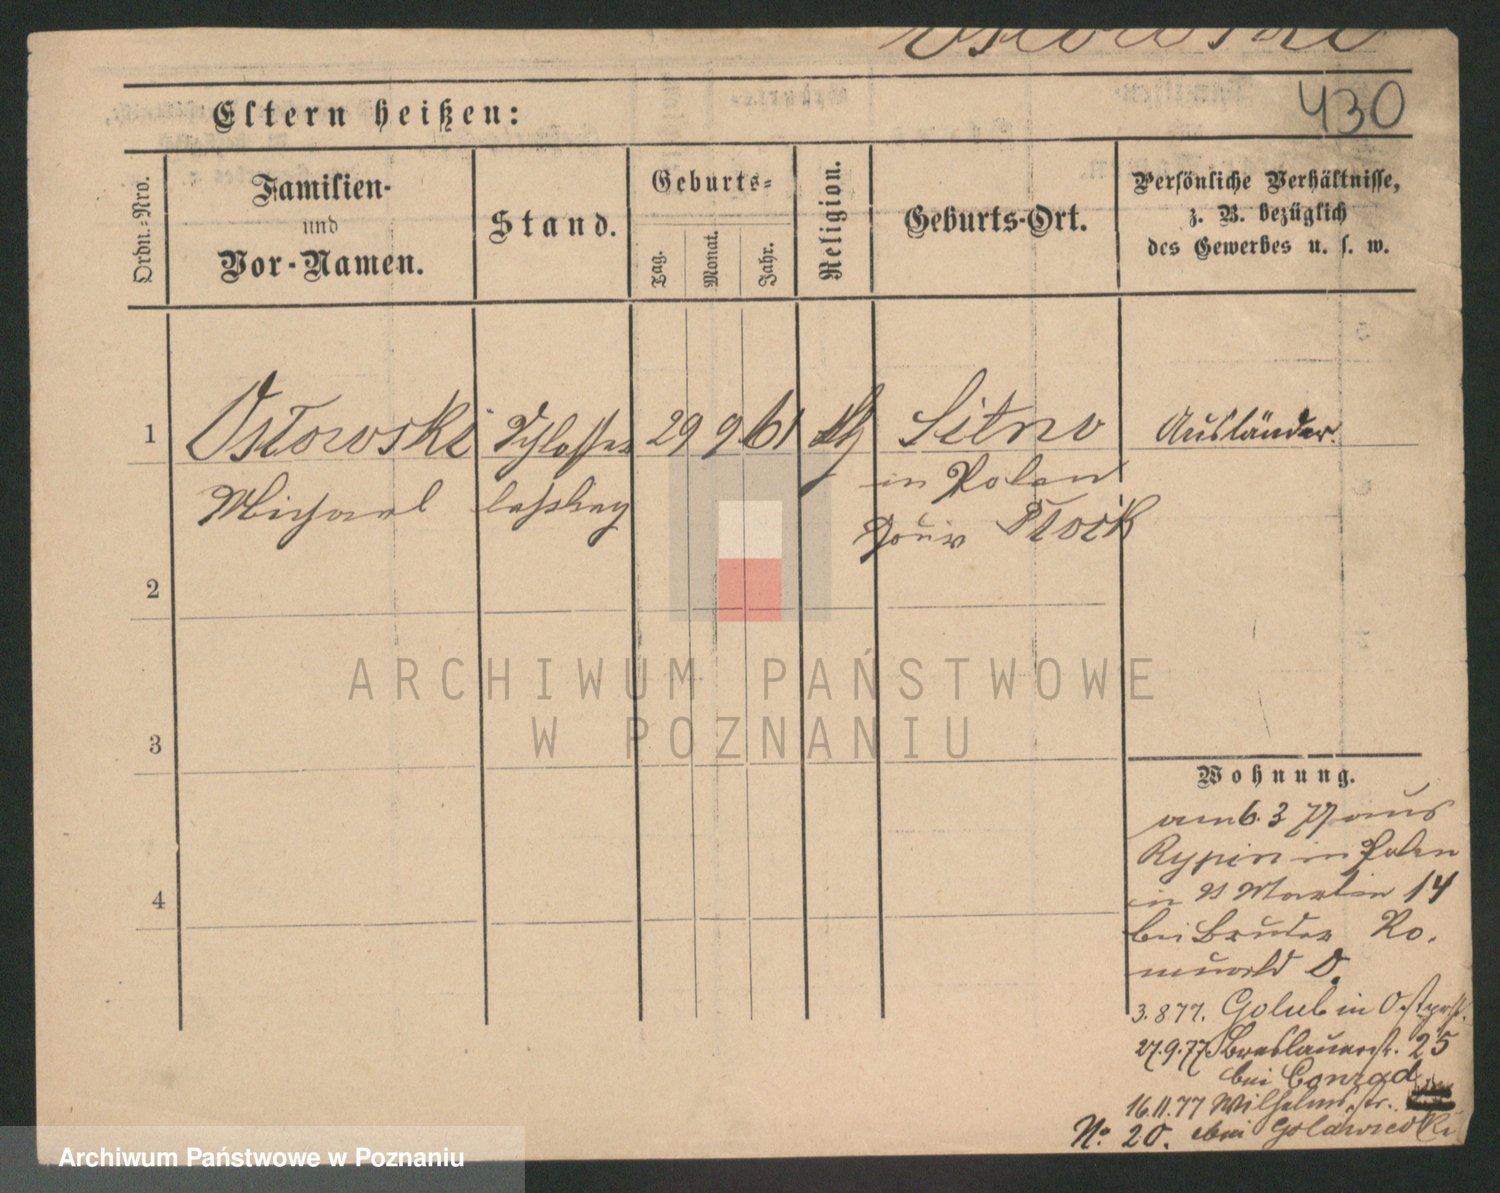 Ostowski
430
Eltern heißen:
Ordn.-Nro.
Familien-
und
Vor-Namen.
Stand.
Geburts-
Tag.
Monat.
Jahr.
Religion.
Geburts-Ort.
Persönliche Verhältnisse,
z. B. bezüglich
des Gewerbes u. s. w.
1
Ostowski
Schlosser
29
9
61
kth
Sitno
Ausländer.
Michael
in Polen
Gouv Płock
2
3
4
Wohnung.
am 6. 3 77 aus
Rypin in Polen
in St Martin 14
bei Bruder Ro-
muald O.
3.8.77. Golub in Ostpr.
27.9.77. Breslauerstr. 25
bei Conrad
16.11.77 Wilhelmsstr.
No. 20. bei Golawiecki
ARCHIWUM PAŃSTWOWE
W POZNANIU
Archiwum Państwowe w Poznaniu